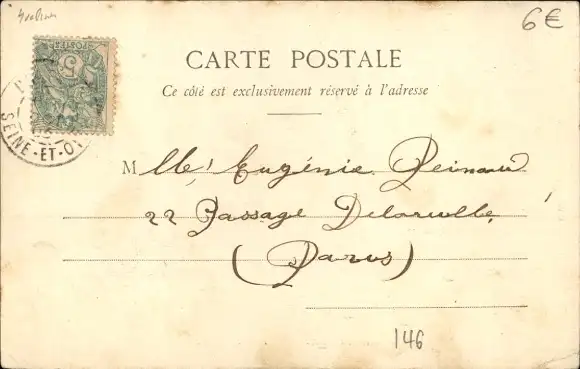 6€
POSTES
5
SEINE-ET-O
CARTE POSTALE
Ce côté est exclusivement réservé à l'adresse
Mlle Eugénie
22 Passage
(Paris)
146